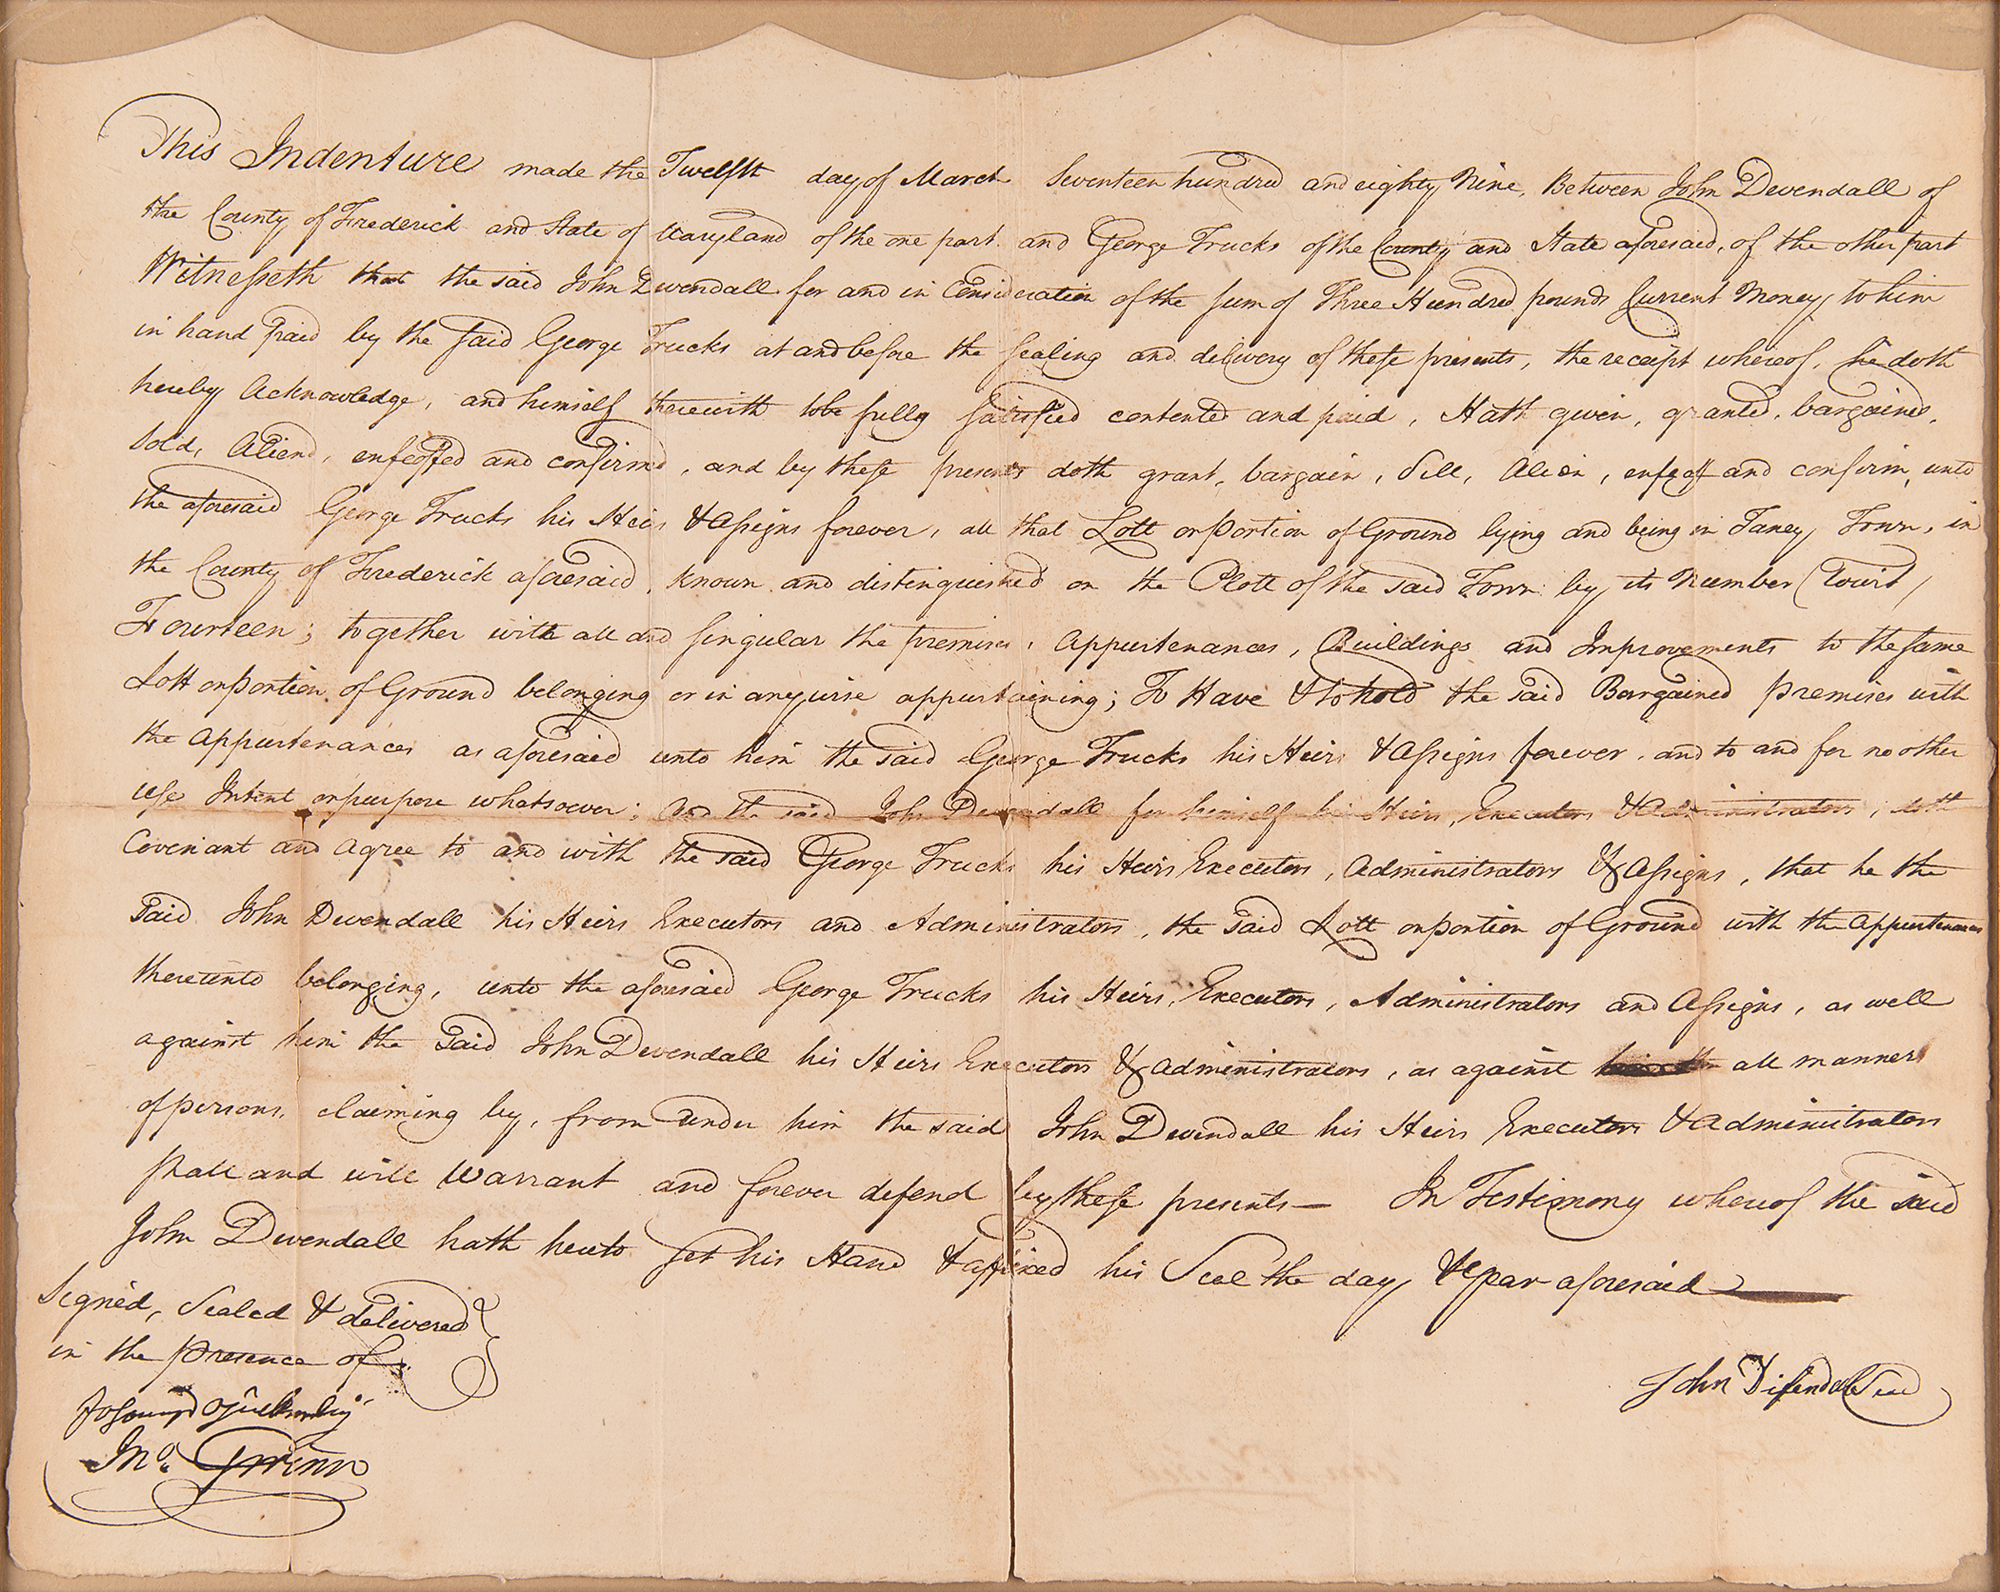 This Indenture made the Twelfth day of March Seventeen hundred and eighty Nine, Between John Devendall of
the County of Frederick and State of Maryland of the one part and George Trucks of the County and State aforesaid, of the other part
Witnesseth that the said John Devendall for and in Consideration of the sum of Three Hundred pounds Current Money, to him
in hand paid by the said George Trucks at and before the sealing and delivery of these presents, the receipt whereof, he doth
hereby Acknowledge, and himself therewith to be fully satisfied contented and paid, Hath given, granted, bargained,
Sold, Aliend, enfeoffed and confirmed, and by these presents doth grant, bargain, Sell, Alien, enfeoff and confirm, unto
the aforesaid George Trucks his Heirs & Assigns forever, all that Lott or Portion of Ground lying and being in Taney Town, in
the County of Frederick aforesaid, known and distinguished on the Plott of the said Town by its Number (Towit)
Fourteen; together with all and singular the premises, Appurtenances, Buildings and Improvements to the same
Lott or Portion of Ground belonging or in anywise appurtaining; To Have & to hold the said Bargained premises with
the Appurtenances as aforesaid unto him the said George Trucks his Heirs & Assigns forever, and to and for no other
use Intent or purpose whatsoever; And the said John Devendall for himself his Heirs, Executors & Administrators, doth
Covenant and Agree to and with the said George Trucks his Heirs Executors, Administrators & Assigns, that he the
said John Devendall his Heirs Executors and Administrators, the said Lott or Portion of Ground with the Appurtenances
thereunto belonging, unto the aforesaid George Trucks his Heirs, Executors, Administrators and Assigns, as well
against him the said John Devendall his Heirs Executors & Administrators, as against all manner
of persons, claiming by, from under him the said John Devendall his Heirs Executors & Administrators
shall and will Warrant and forever defend by these presents— In Testimony whereof the said
John Devendall hath hereto set his Hand & affixed his Seal the day & year aforesaid
Signed, Sealed & delivered
in the presence of
Jno. Gwinn
John